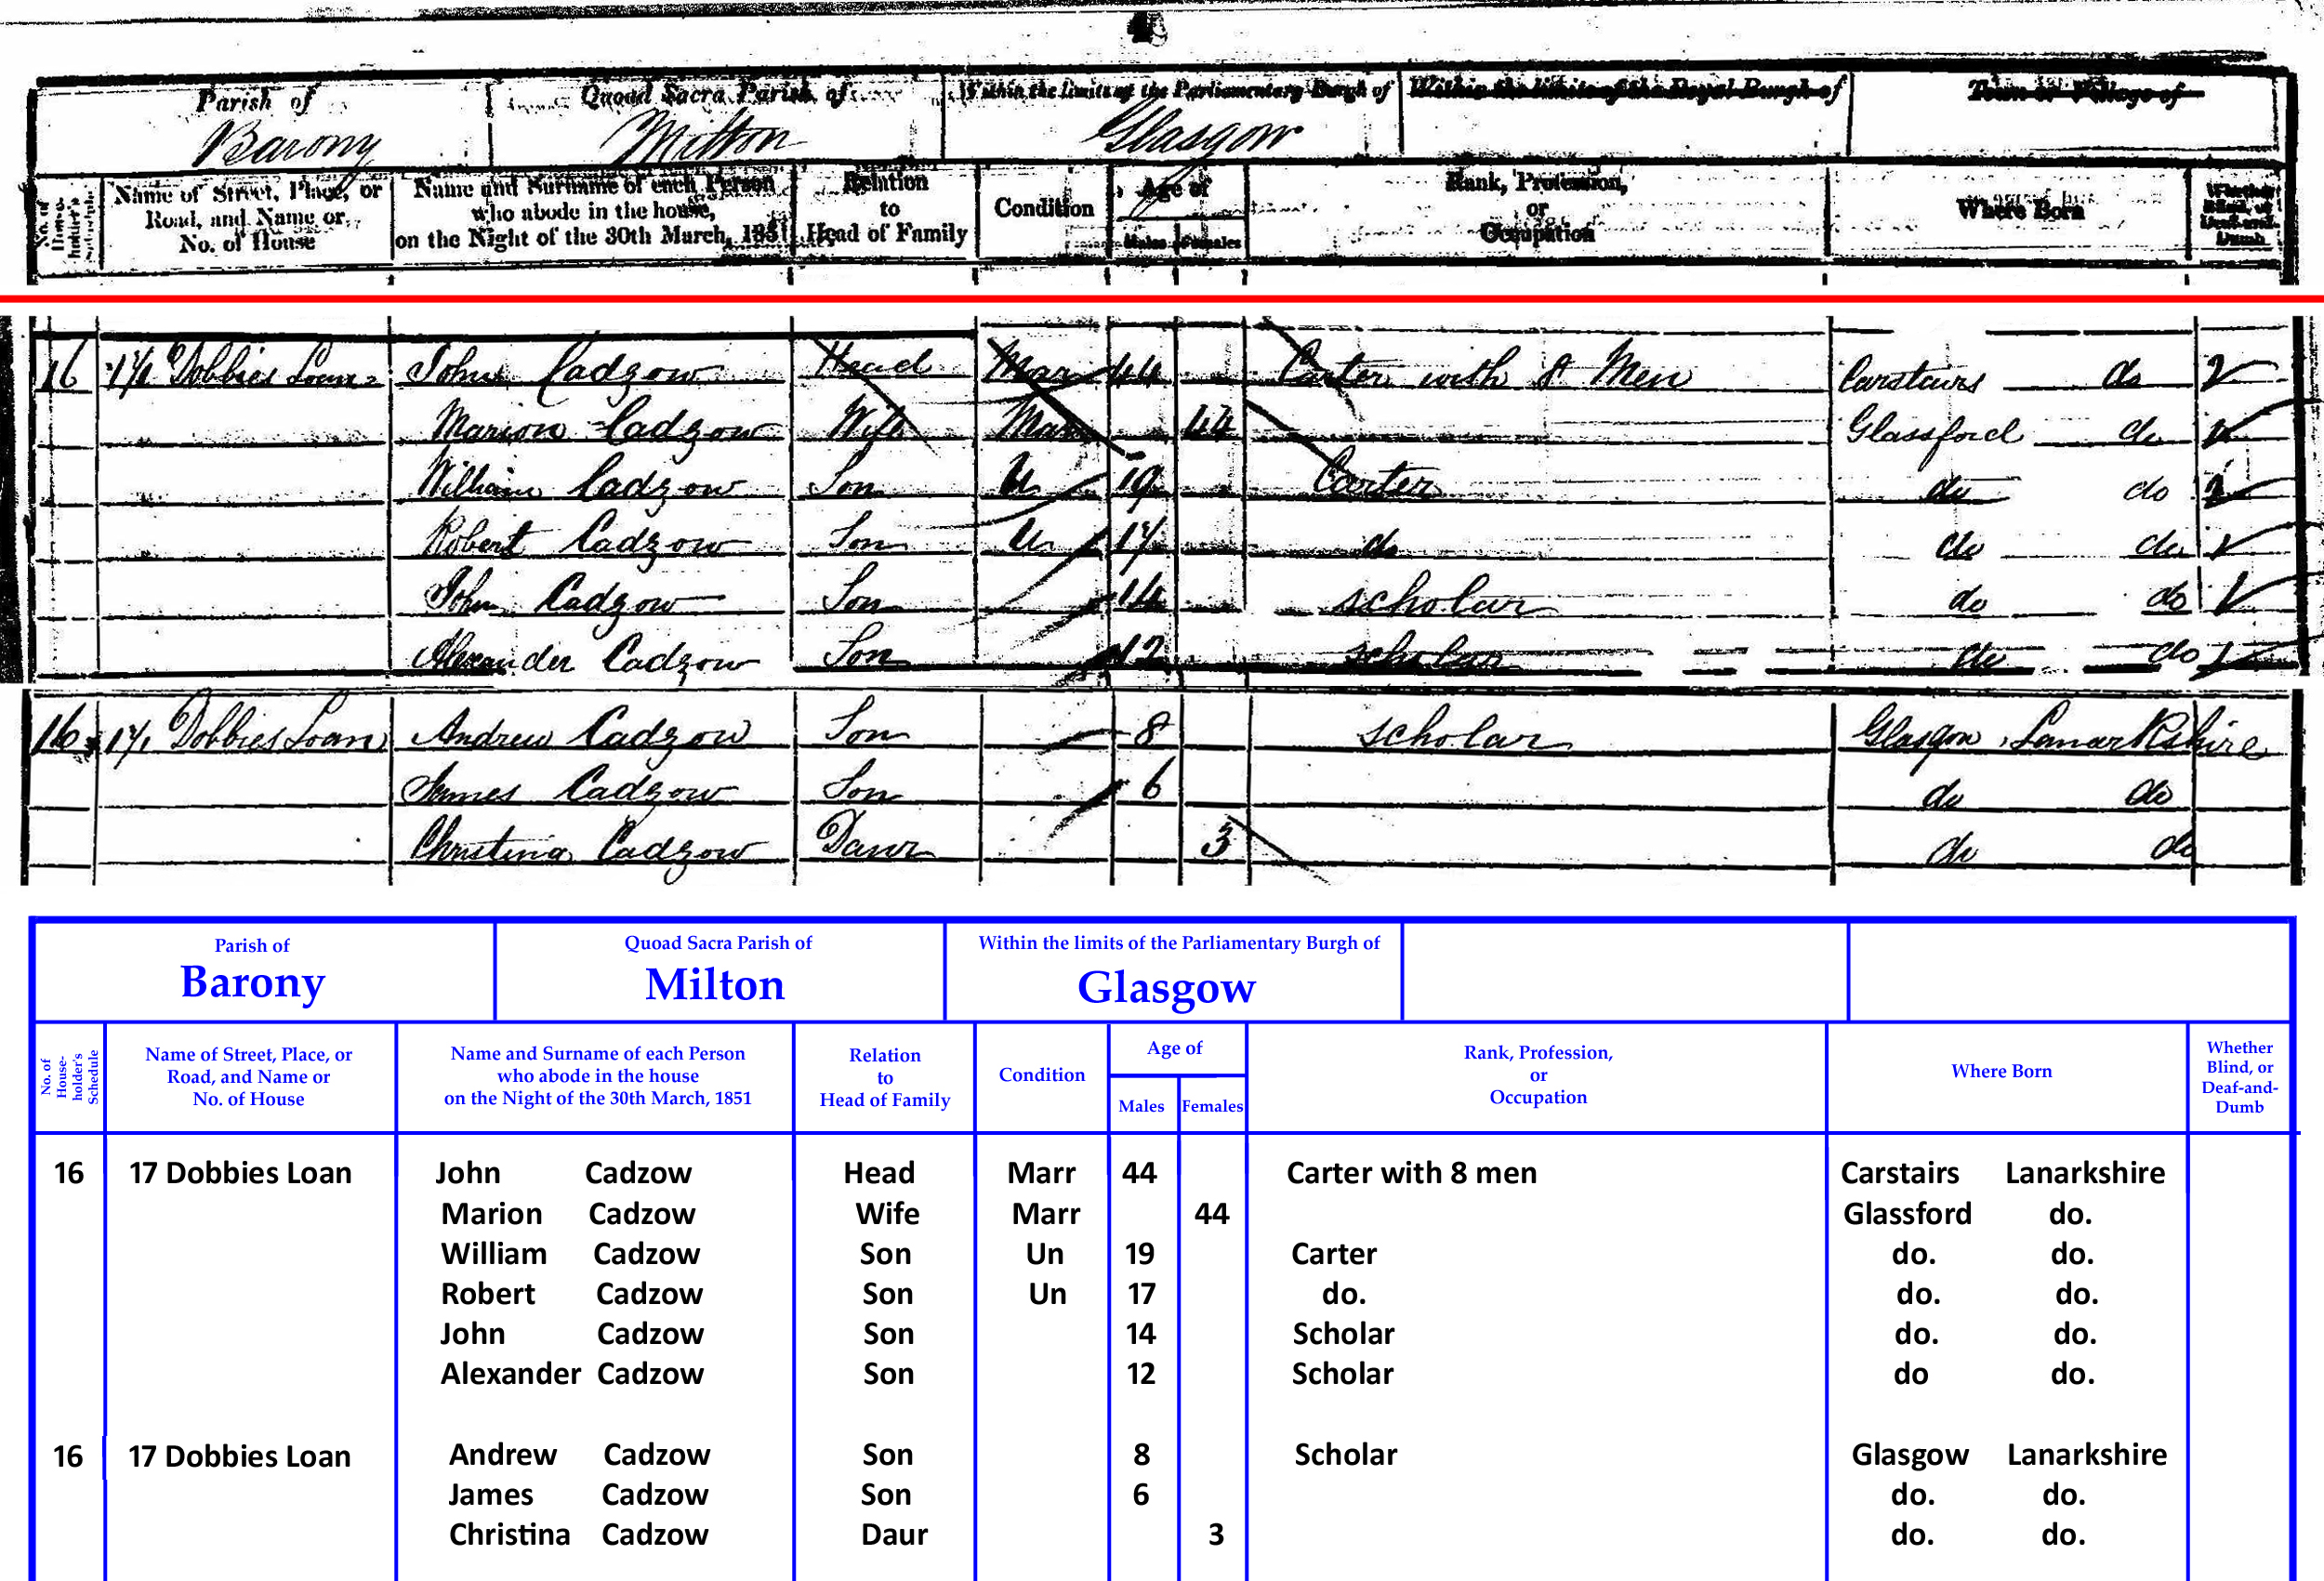 Parish of
Barony
Quoad Sacra Parish of
Milton
Within the limits of the Parliamentary Burgh of
Glasgow
Within the limits of the Royal Burgh of
Town or Village of
No. of House-holder's Schedule
Name of Street, Place, or
Road, and Name or
No. of House
Name and Surname of each Person
who abode in the house,
on the Night of the 30th March, 1851
Relation
to
Head of Family
Condition
Age of
Males Females
Rank, Profession,
or
Occupation
Where Born
Whether
Blind, or
Deaf-and-
Dumb
16 17 Dobbies Loan John Cadzow Head Mar 44 Carter with 8 Men Carstairs do
Marion Cadzow Wife Mar 44 Glassford do
William Cadzow Son U 19 Carter do do
Robert Cadzow Son U 17 do do do
John Cadzow Son 14 scholar do do
Alexander Cadzow Son 12 scholar do do
16 17 Dobbies Loan Andrew Cadzow Son 8 scholar Glasgow, Lanarkshire
James Cadzow Son 6 do do
Christina Cadzow Daur 3 do do
Parish of
Barony
Quoad Sacra Parish of
Milton
Within the limits of the Parliamentary Burgh of
Glasgow
No. of
House-
holder's
Schedule
Name of Street, Place, or
Road, and Name or
No. of House
Name and Surname of each Person
who abode in the house
on the Night of the 30th March, 1851
Relation
to
Head of Family
Condition
Age of
Males Females
Rank, Profession,
or
Occupation
Where Born
Whether
Blind, or
Deaf-and-
Dumb
16 17 Dobbies Loan John Cadzow Head Marr 44 Carter with 8 men Carstairs Lanarkshire
Marion Cadzow Wife Marr 44 Glassford do.
William Cadzow Son Un 19 Carter do. do.
Robert Cadzow Son Un 17 do. do. do.
John Cadzow Son 14 Scholar do. do.
Alexander Cadzow Son 12 Scholar do do.
16 17 Dobbies Loan Andrew Cadzow Son 8 Scholar Glasgow Lanarkshire
James Cadzow Son 6 do. do.
Christina Cadzow Daur 3 do. do.